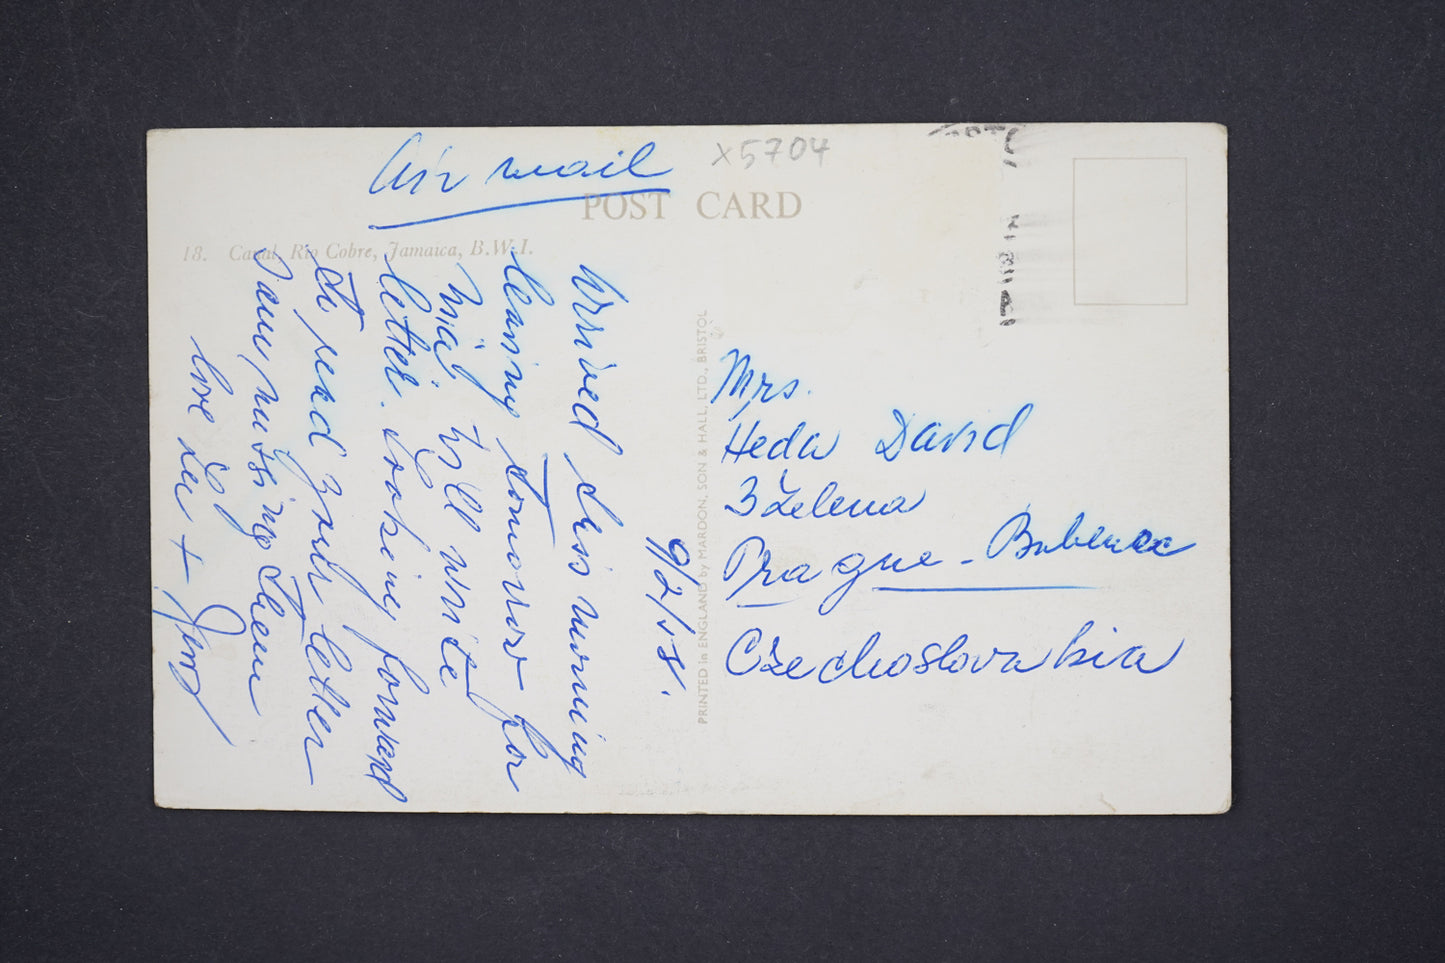 Air mail
x5704
POST CARD
18. Canal, Rio Cobre, Jamaica, B.W.I.
9/2/58.
Arrived this morning
leaving tomorrow for
will write
letter. Looking forward
to read your letter
missing them
love +
PRINTED in ENGLAND by MARDON, SON & HALL, LTD., BRISTOL
Mrs.
Heda David
3 Zelena
Prague - Bubenec
Czechoslovakia